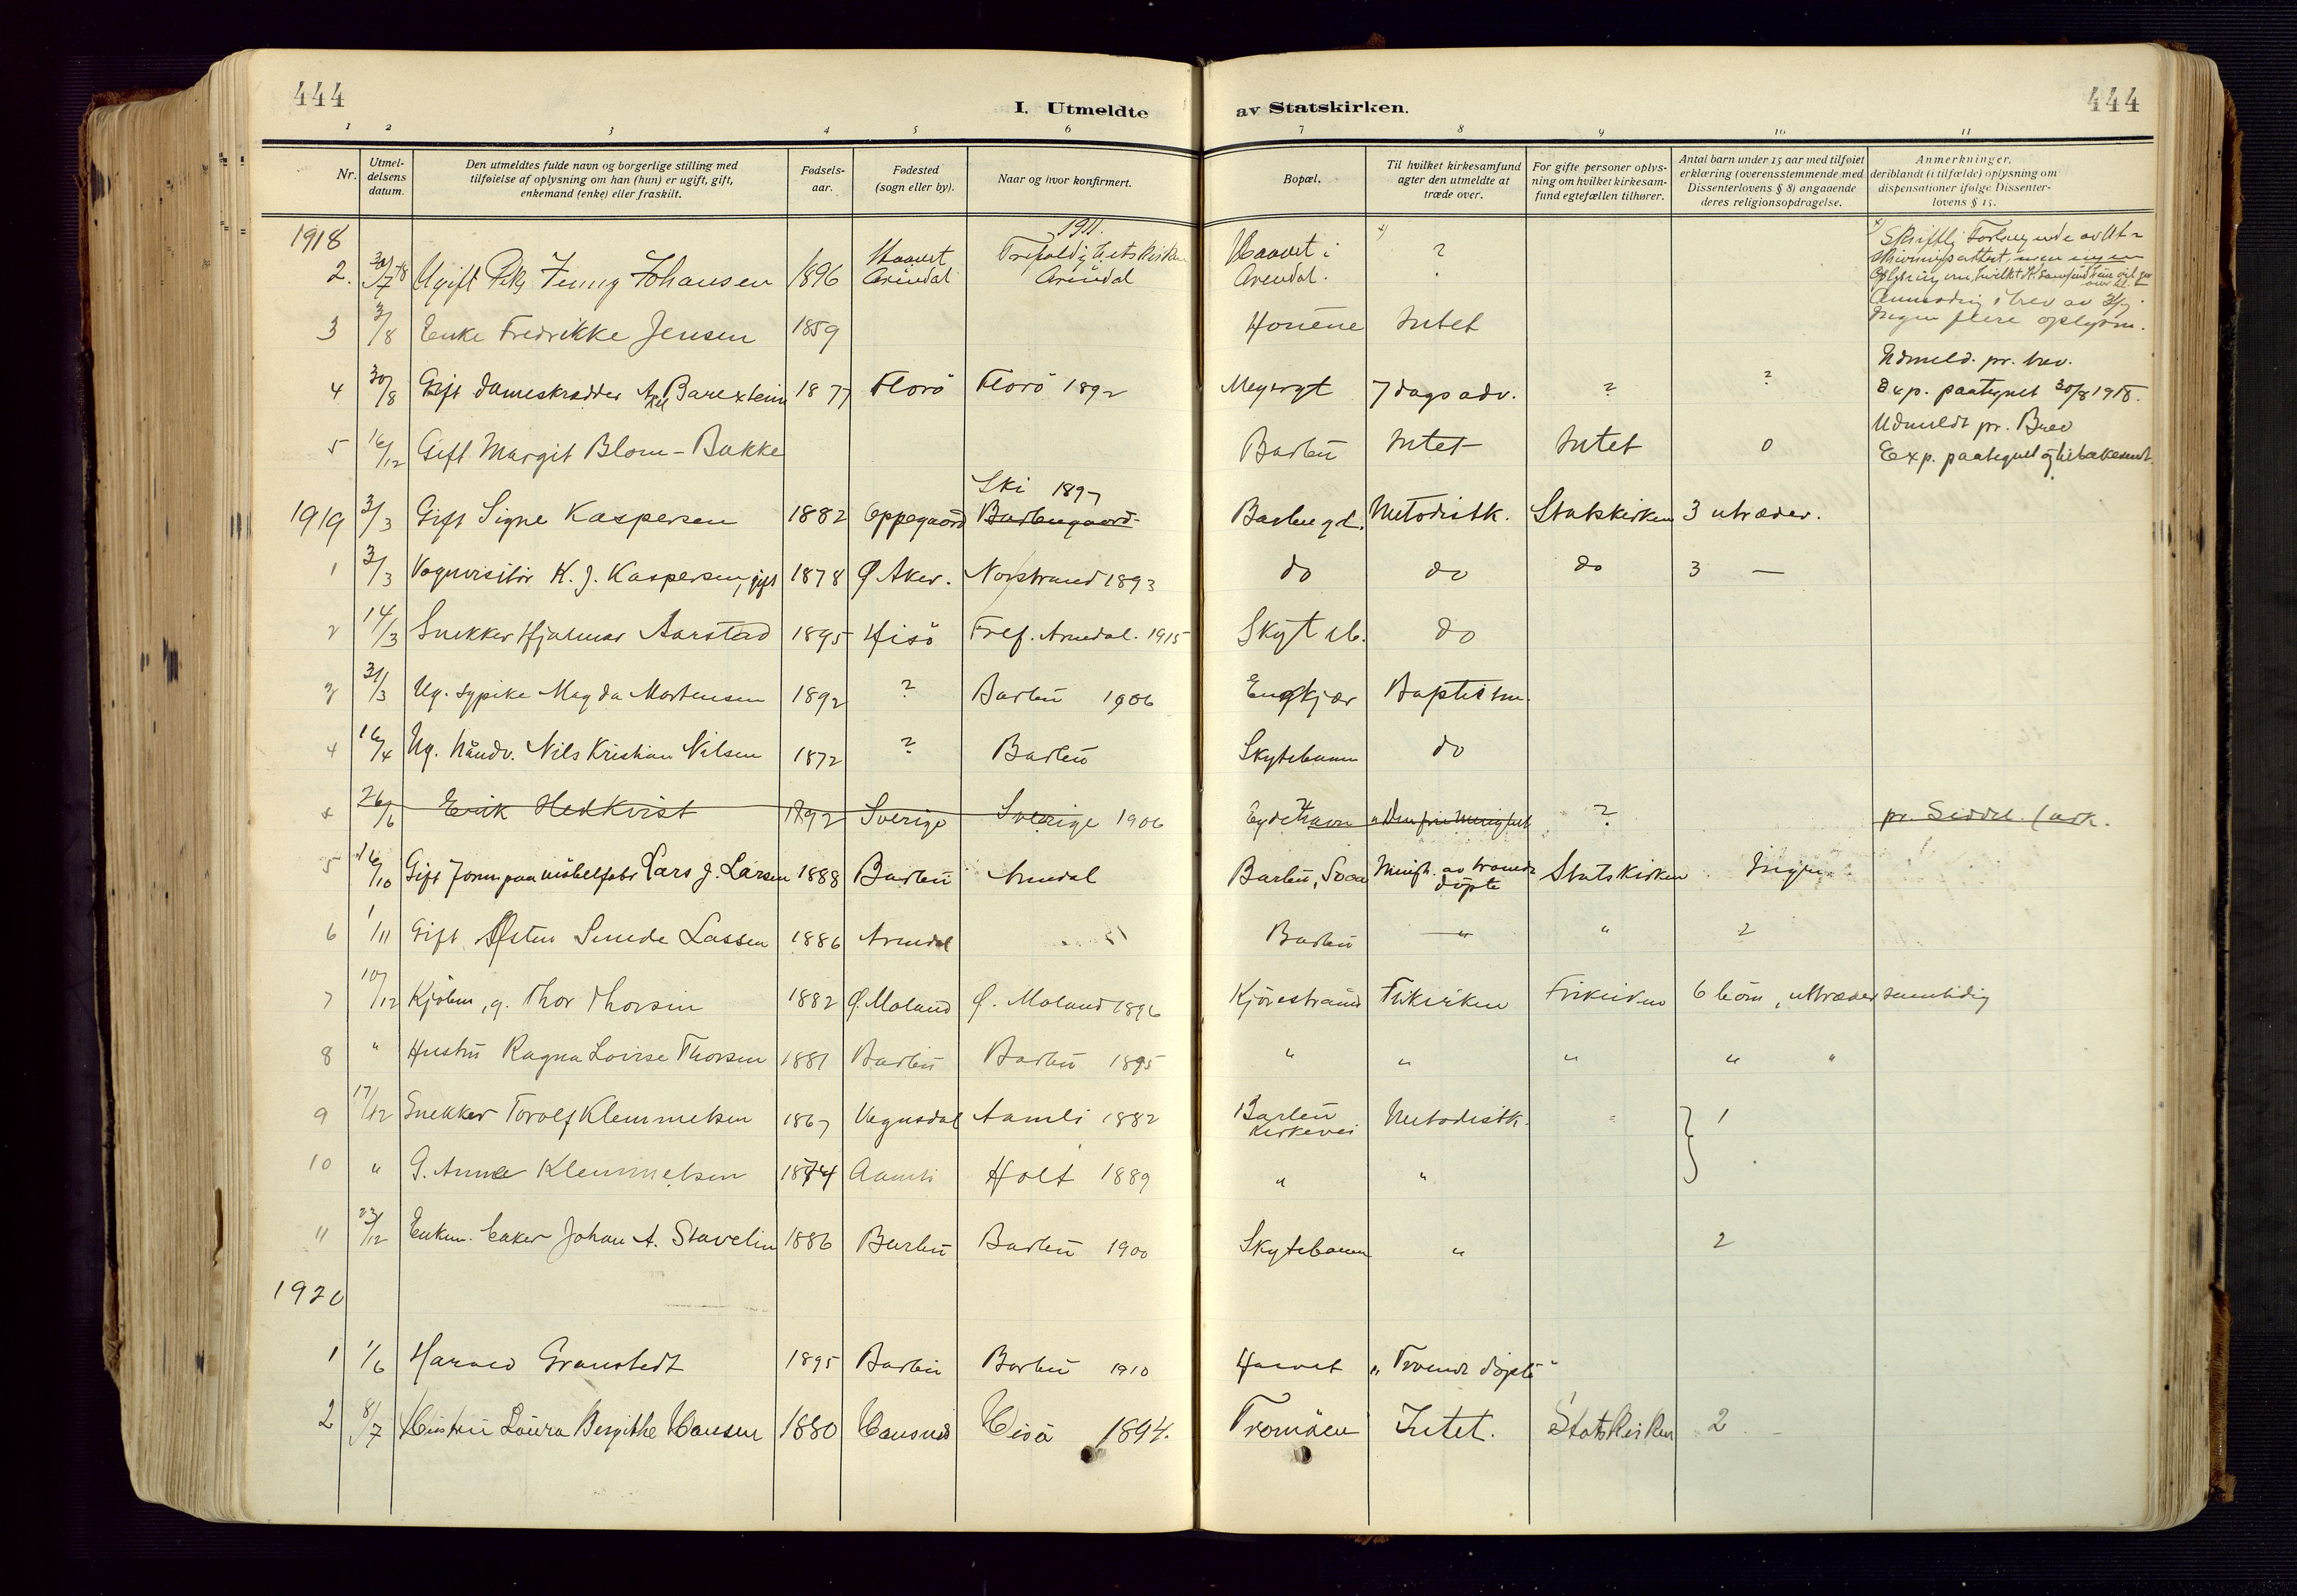 444
444
I. Utmeldte
av Statskirken.
1 2 3 4 5 6 7 8 9 10 11
Nr.
Utmel-
delsens
datum.
Den utmeldtes fulde navn og borgerlige stilling med
tilføielse af oplysning om han (hun) er ugift, gift,
enkemand (enke) eller fraskilt.
Fødsels-
aar.
Fødested
(sogn eller by).
Naar og hvor konfirmert.
Bopæl.
Til hvilket kirkesamfund
agter den utmeldte at
træde over.
For gifte personer oplys-
ning om hvilket kirkesam-
fund egtefællen tilhører.
Antal barn under 15 aar med tilføiet
erklæring (overensstemmende med
Dissenterlovens § 8) angaaende
deres religionsopdragelse.
Anmerkninger,
deriblandt (i tilfælde) oplysning om
dispensationer ifølge Dissenter-
lovens § 15.
1918
2. 30/7 18 Ugift Jenny Johansen 1896 Haavet Arendal 1911. Trefoldighetskirken Arendal Haavet i Arendal. x) ?
3 3/8 Enke Fredrikke Jensen 1859 Intet Ingen flere oplysn.
4 30/8 Gift dameskrædder Axel 1877 Florö Florö 1892 Meyergt 7 dags adv. ? ? Udmeld. pr. brev.
Exp. paategnet 30/8 1918.
5 16/12 Gift Margit Blom-Bakke Barbu Intet Intet 0 Udmeldt pr. Brev
Exp. paategnet og tilbakesendt.
Ski 1897
1919 3/3 Gift Signe Kaspersen 1882 Oppegaard Barbugt. Metodistk. Statskirken 3 utræder.
1 3/3 Vognvisitör K. J. Kaspersen, gift 1878 Ø Aker. Norstrand 1893 do do do 3 —
2 14/3 Snekker Hjalmar Aarstad 1895 Hisö Tref. Arendal. 1915 Skyteb. do
3 31/3 Ug. sypike Magda Mortensen 1892 ? Barbu 1906 Engkjær Baptistsm.
4 16/4 Ug. håndv. Nils Kristian Nilsen 1872 ? Barbu Skytebanen do
x 26/6 Erik Hedkvist 1892 Sverige Sverige 1906 Eydehavn "Den frie Menighet ?
5 16/10 Gift Lars J. Larsen 1888 Barbu Arendal Barbu, Menigh. av troende döpte Statskirken Ingen
6 1/11 Gift Østen Smede Lassen 1886 Arendal Barbu — " " 2
7 10/12 Kjölm, g. Thor Thorsen 1882 Ø. Moland Ø. Moland 1896 Kjörestrand Frikirken Frikirken 6 börn, uttræder samtidig
8 " Hustru Ragna Lovise Thorsen 1881 Barbu Barbu 1895 " " " " "
9 17/12 Snekker Torolf Klemmetsen 1867 Vegusdal Aamli 1882 Barbu Kirkevei Metodistk. " 1
10 " G. Anne Klemmetsen 1874 Aamli Holt 1889 " "
11 23/12 Enkem. baker Johan A. Stavelin 1886 Barbu Barbu 1900 Skytebanen " 2
1920
1 1/6 Harald Granstedt 1895 Barbu Barbu 1910 Haavet "Troende döpte"
2 8/7 Hustru Laura Bergithe Hansen 1880 Hisö 1894. Tromöen Intet. Statskirken 2 -